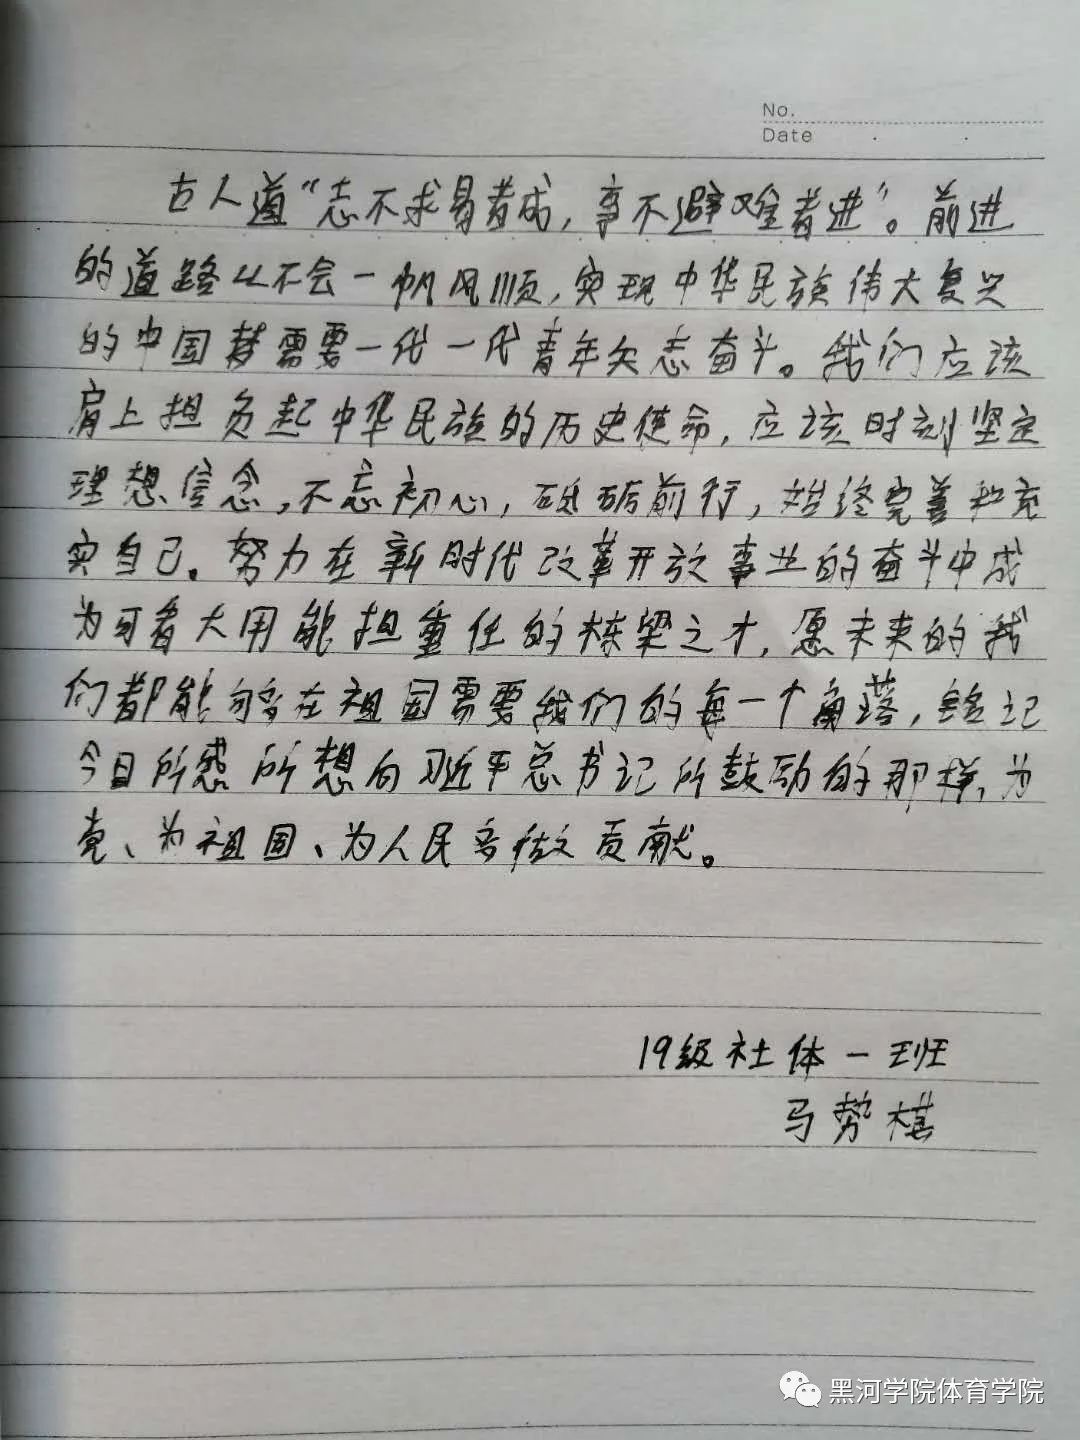 No.
Date
古人道“志不求易者成，事不避难者进”。前进
的道路从不会一帆风顺，实现中华民族伟大复兴
的中国梦需要一代一代青年矢志奋斗。我们应该
肩上担负起中华民族的历史使命，应该时刻坚定
理想信念，不忘初心，砥砺前行，始终完善和充
实自己。努力在新时代改革开放事业的奋斗中成
为可着大用能担重任的栋梁之才，愿未来的我
们都能够在祖国需要我们的每一个角落，铭记
今日所感所想向习近平总书记所鼓励的那样，为
党、为祖国、为人民多做贡献。
19级社体一班
马势棋
黑河学院体育学院